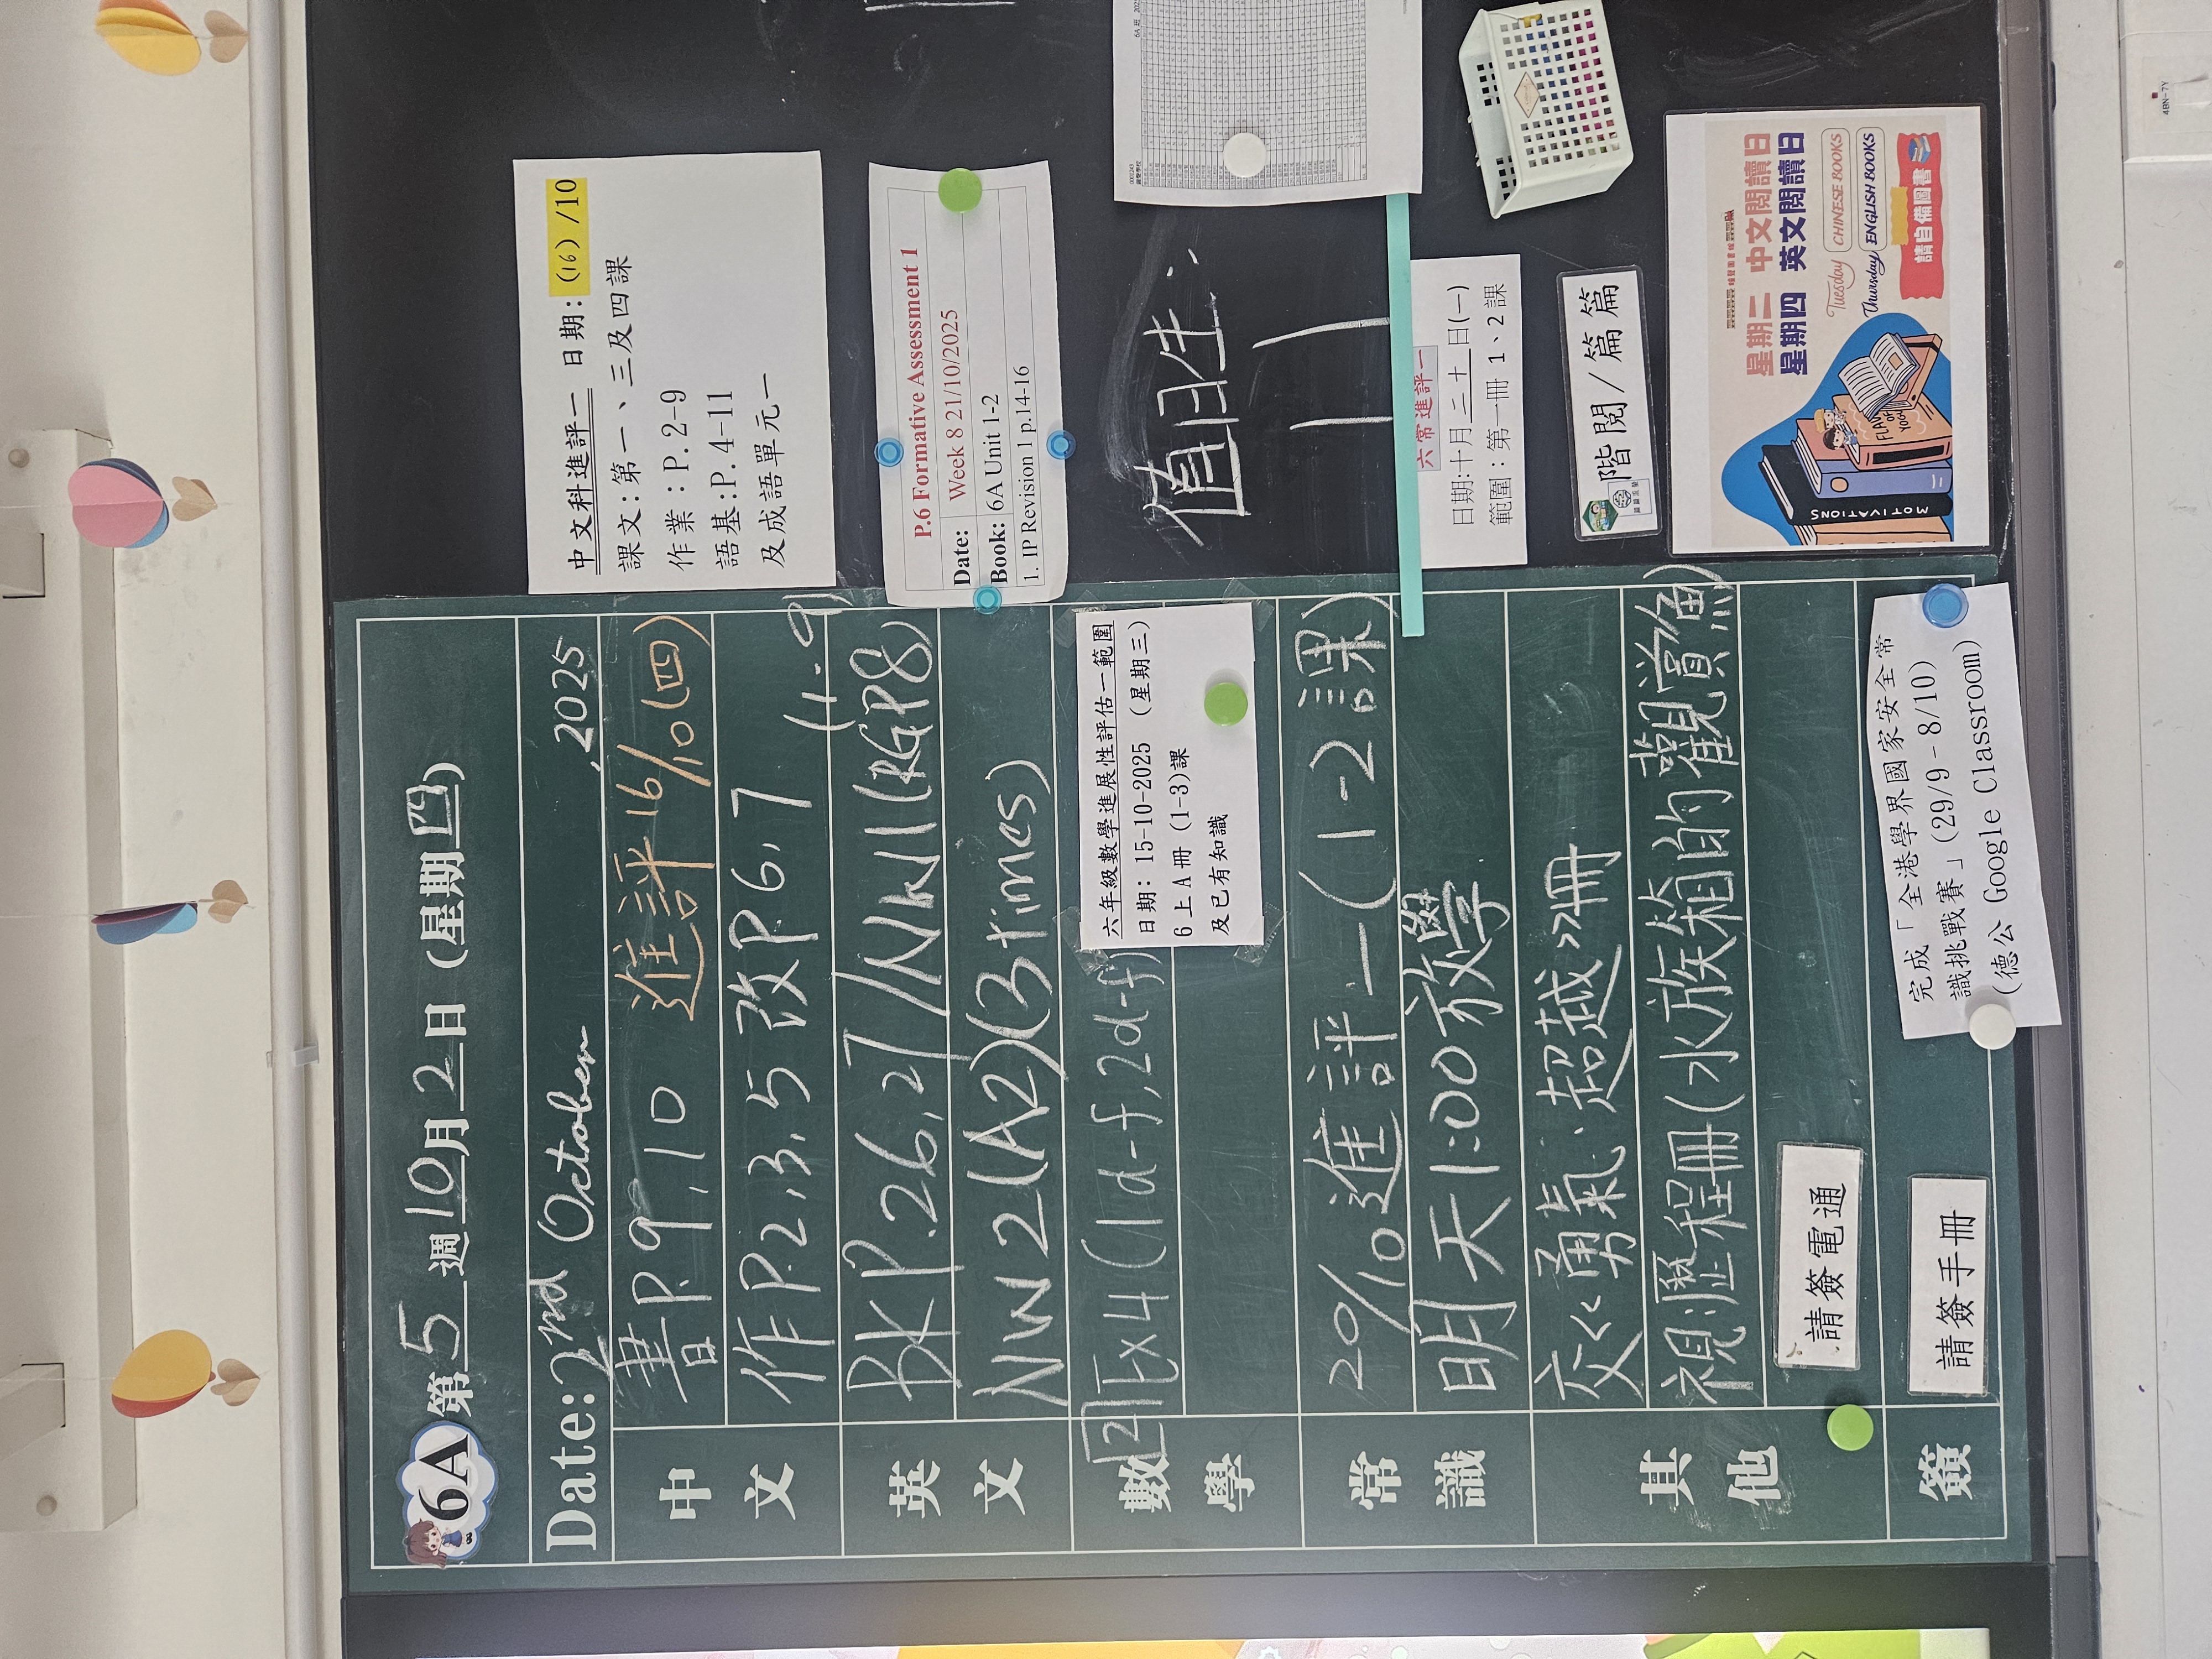 6A 第5週10月2日(星期四)
Date: 2nd October, 2025
中文
書P.9,10 進評16/10(四)
作P.2,3,5 改P.6,7 (1-9)
英文
BKP.26,27/NW1(RGP8)
NW2(A2)(3times)
數學
[2]Ex4(1d-f,2d-f)
六年級數學進展性評估一範圍
日期: 15-10-2025 (星期三)
6上A冊 (1-3)課
及已有知識
常識
20/10進評一(1-2課)
明天1:00放學
其他
交<<勇氣.超越>>冊
視:歷程冊(水族箱的觀賞魚)
請簽電通
簽
請簽手冊
完成「全港學界國家安全常
識挑戰賽」(29/9-8/10)
(德公 Google Classroom)
中文科進評一 日期:(16)/10
課文:第一、三及四課
作業:P.2-9
語基:P.4-11
及成語單元一
P.6 Formative Assessment 1
Date: Week 8 21/10/2025
Book: 6A Unit 1-2
1. IP Revision 1 p.14-16
值日生:
六常進評一
日期:十月二十日(一)
範圍:第一冊 1、2課
階閱/篇篇
星期二 中文閱讀日
星期四 英文閱讀日
Tuesday CHINESE BOOKS
Thursday ENGLISH BOOKS
請自備圖書
MOTIVATIONS
4BN-7Y